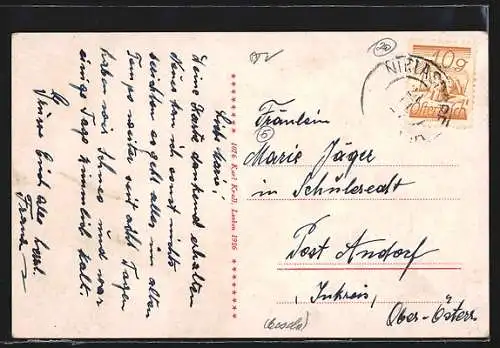 Liebe Marie!
Deine Karte dankend erhalten
Neues kann ich sonst nichts
berichten es geht alles im alten
Tempo weiter seit acht Tagen
haben wir Schnee und war
einige Tage ziemlich kalt.
Grüsse Euch alle herzl.
Franz
1076 Karl Kroll, Linden 1926
20
10g
Österreich
NIKLAS
Fräulein
5
Marie Jäger
in Schülleredt
Post Andorf
Inkreis,
Ober-Österr.